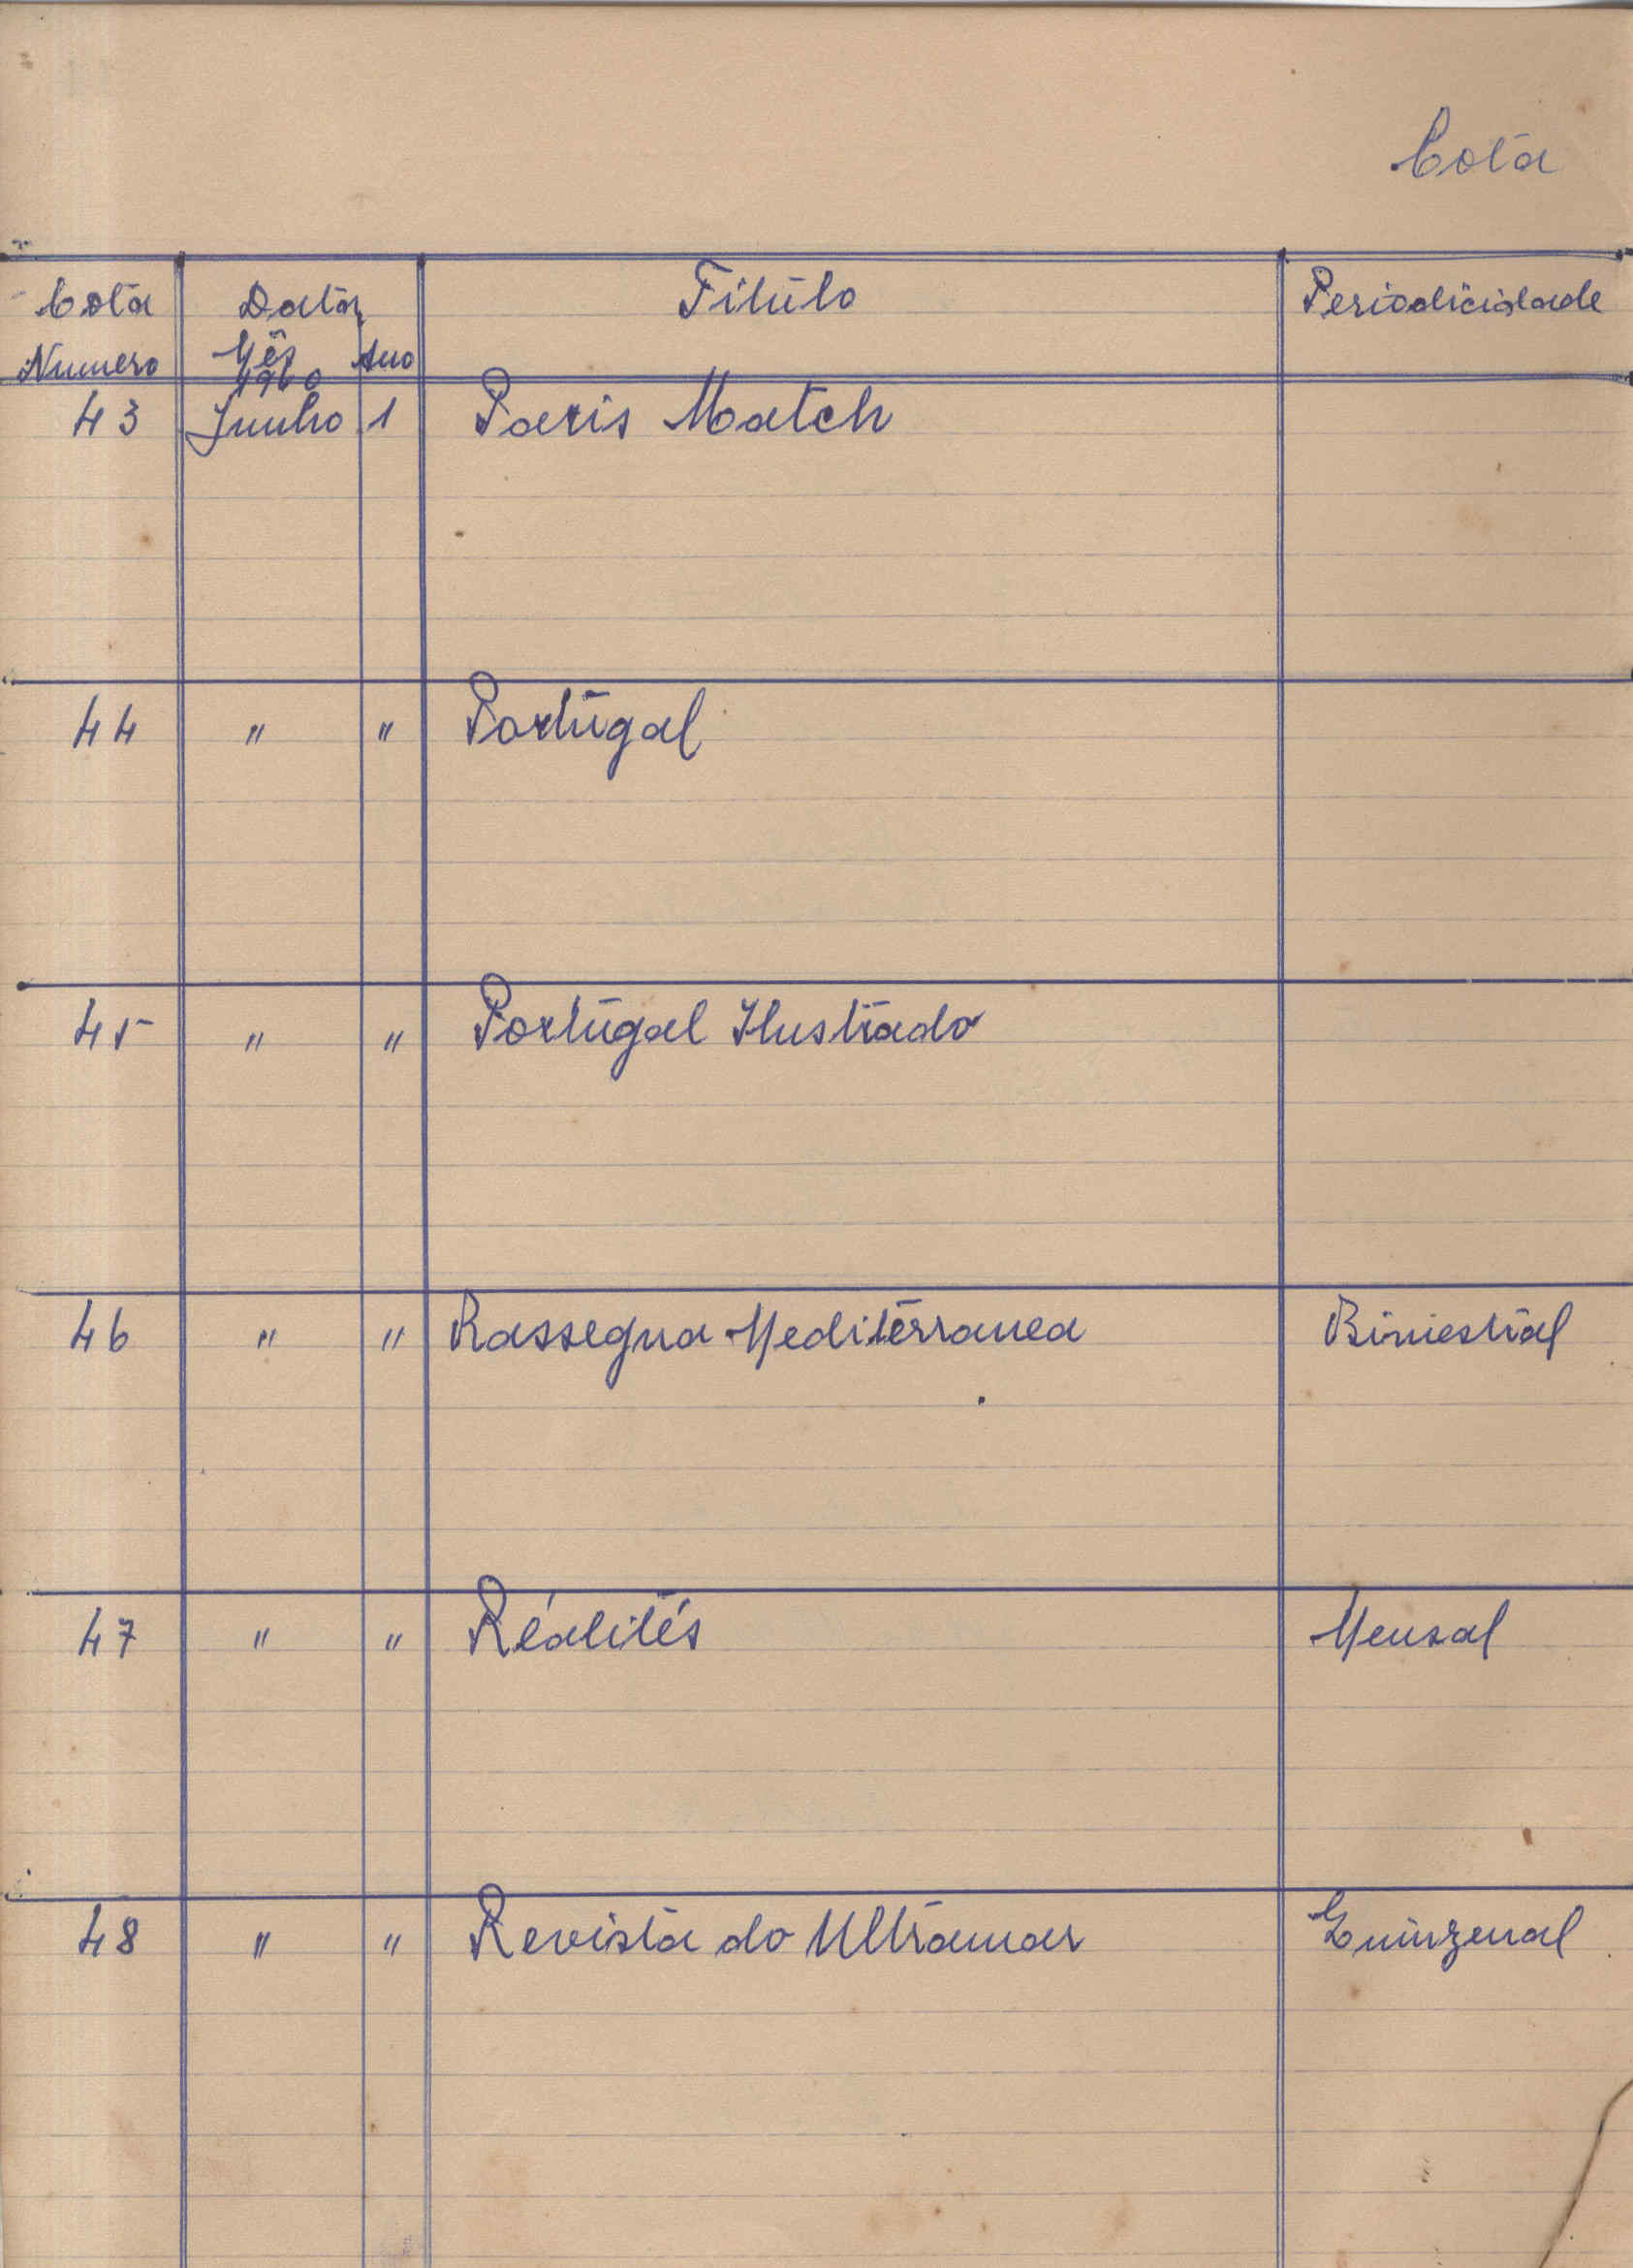 Cota
Cota Data Titulo Periodicidade
Numero Mês Ano
1960
43 Junho 1 Paris Match
44 " " Portugal
45 " " Portugal Ilustrado
46 " " Rassegna Mediterranea Bimestral
47 " " Réalités Mensal
48 " " Revista do Ultramar Quinzenal